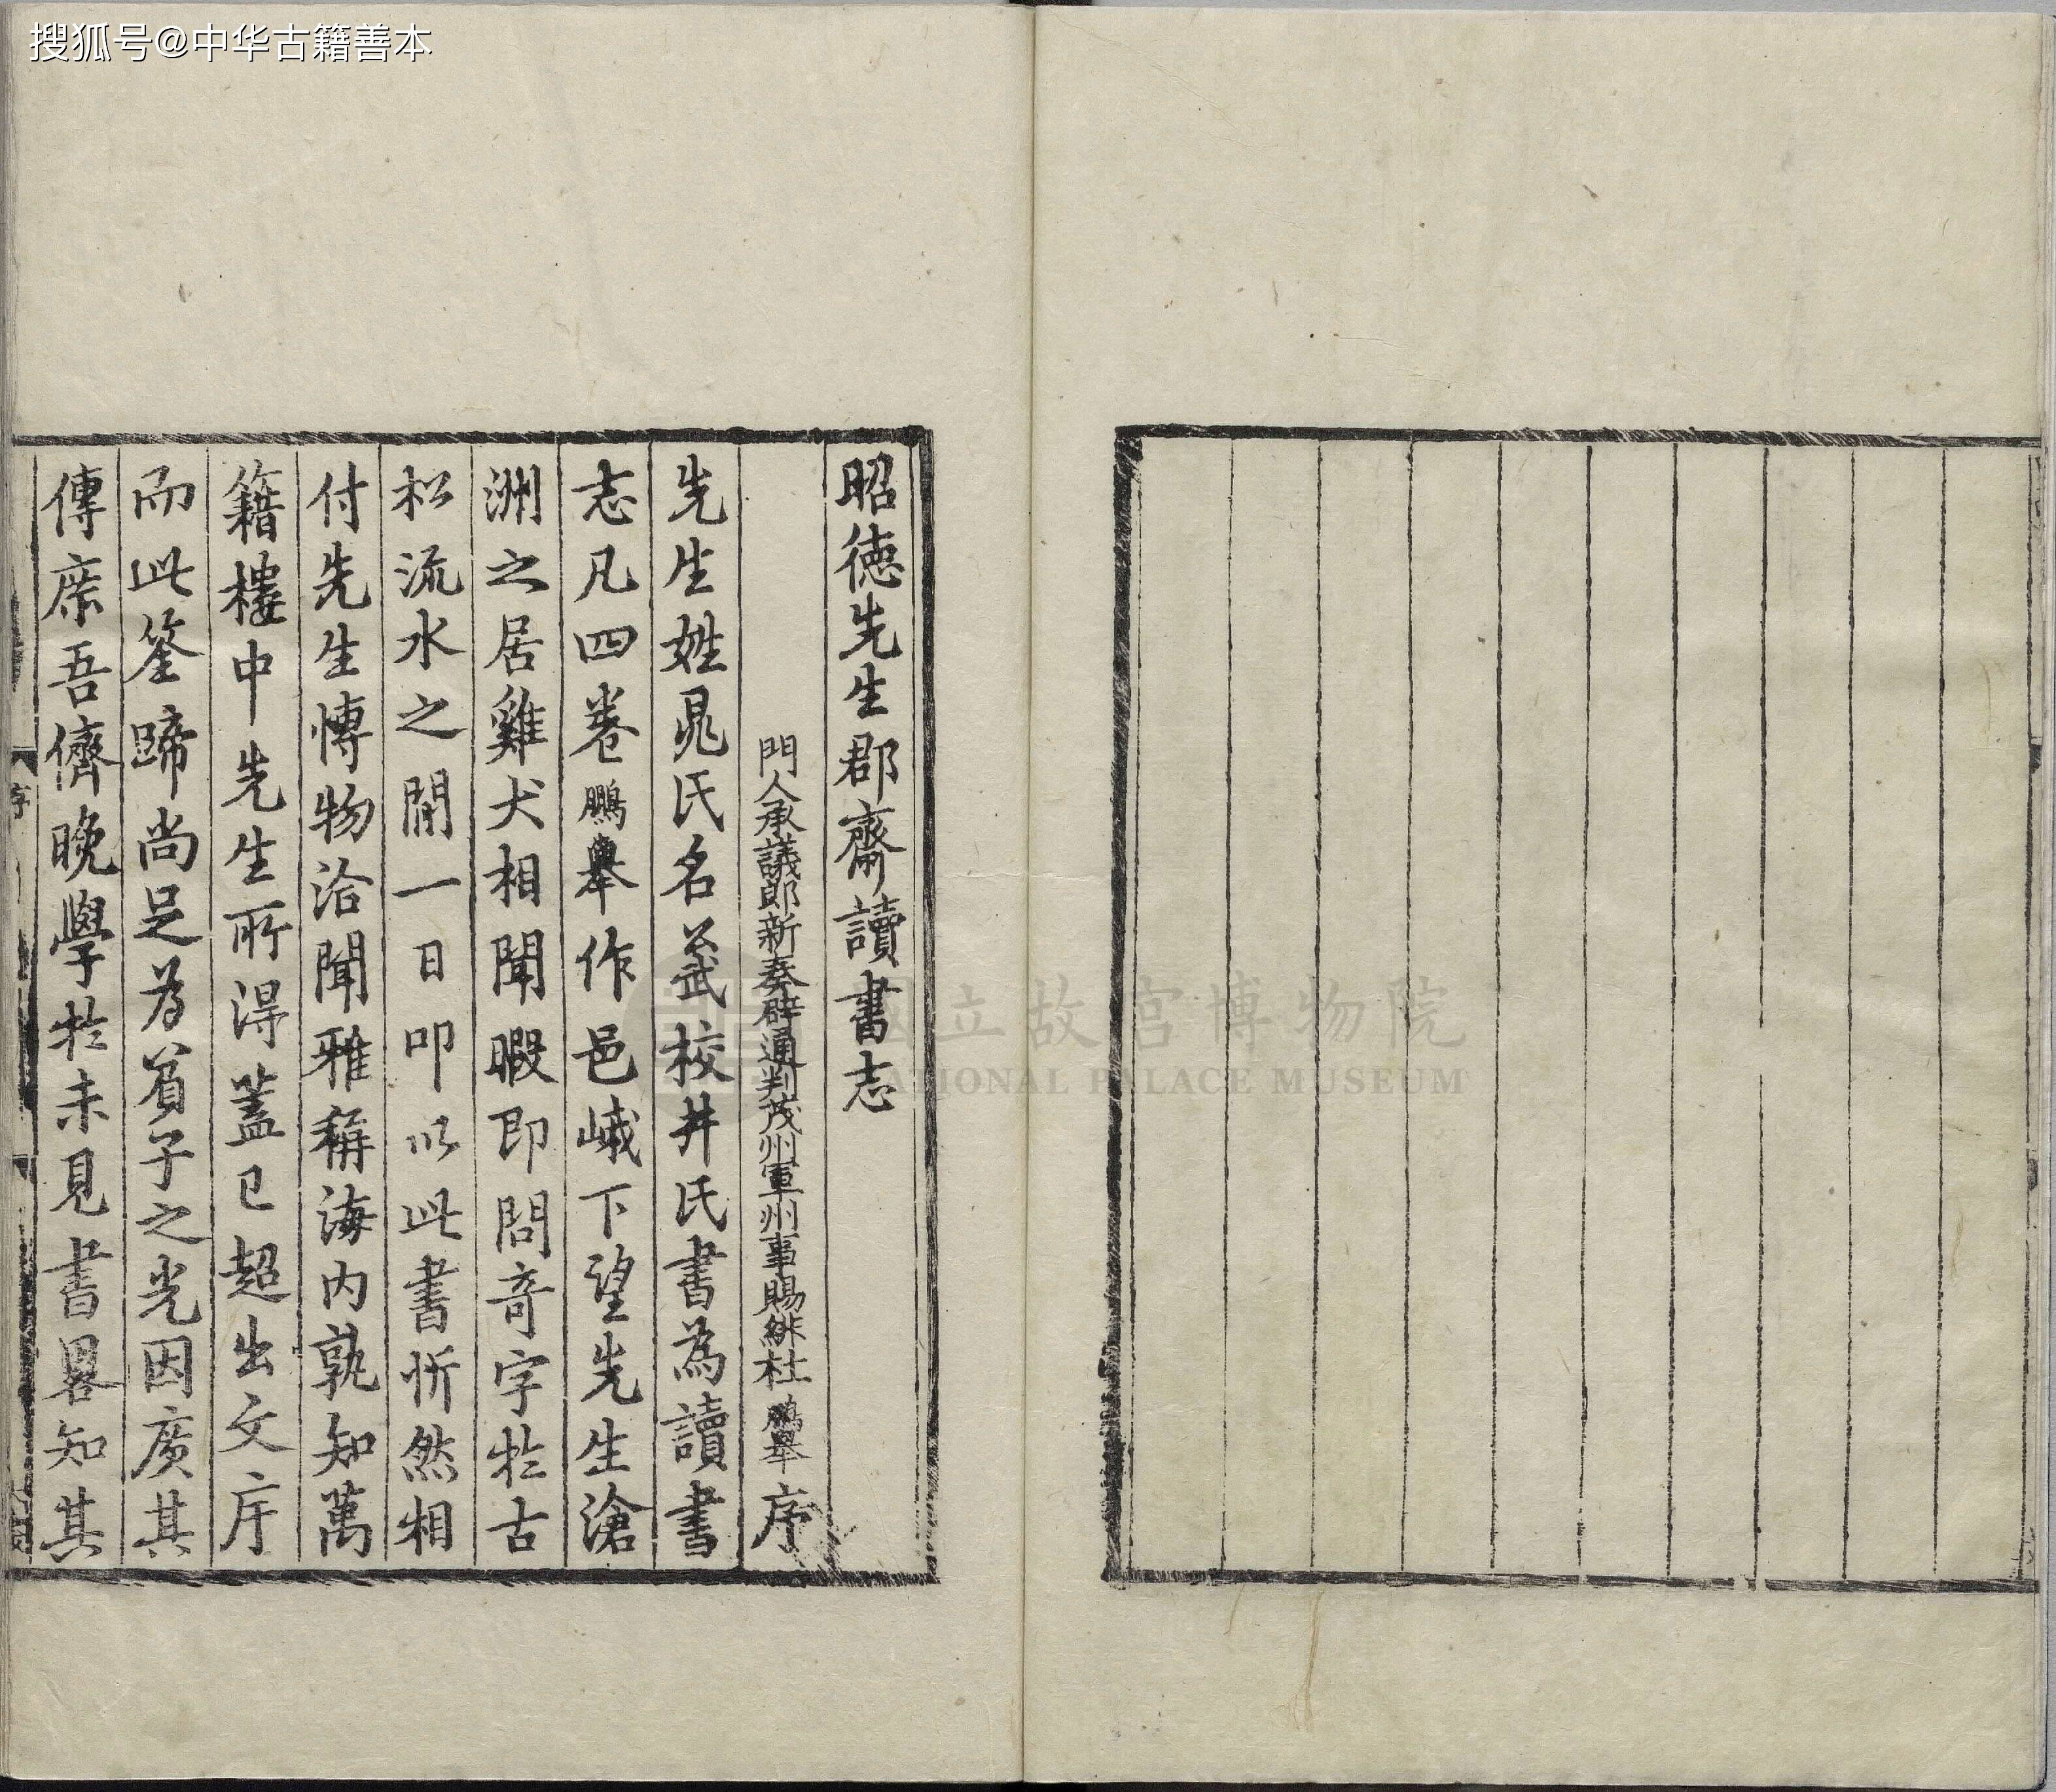 搜狐号@中华古籍善本
昭德先生郡齋讀書志
門人承議郎新奏辟通判茂州軍州事賜緋杜鵬舉序
先生姓晁氏名公武校井氏書為讀書
志凡四卷鵬舉作邑峨下望先生滄
洲之居雞犬相聞暇即問奇字於古
松流水之間一日叩以此書忻然相
付先生博物洽聞雅稱海内孰知萬
籍樓中先生所得蓋已超出文字
而此筌蹄尚足為貧子之光因廣其
傳庶吾儕晚學於未見書畧知其
序
國立故宮博物院
NATIONAL PALACE MUSEUM